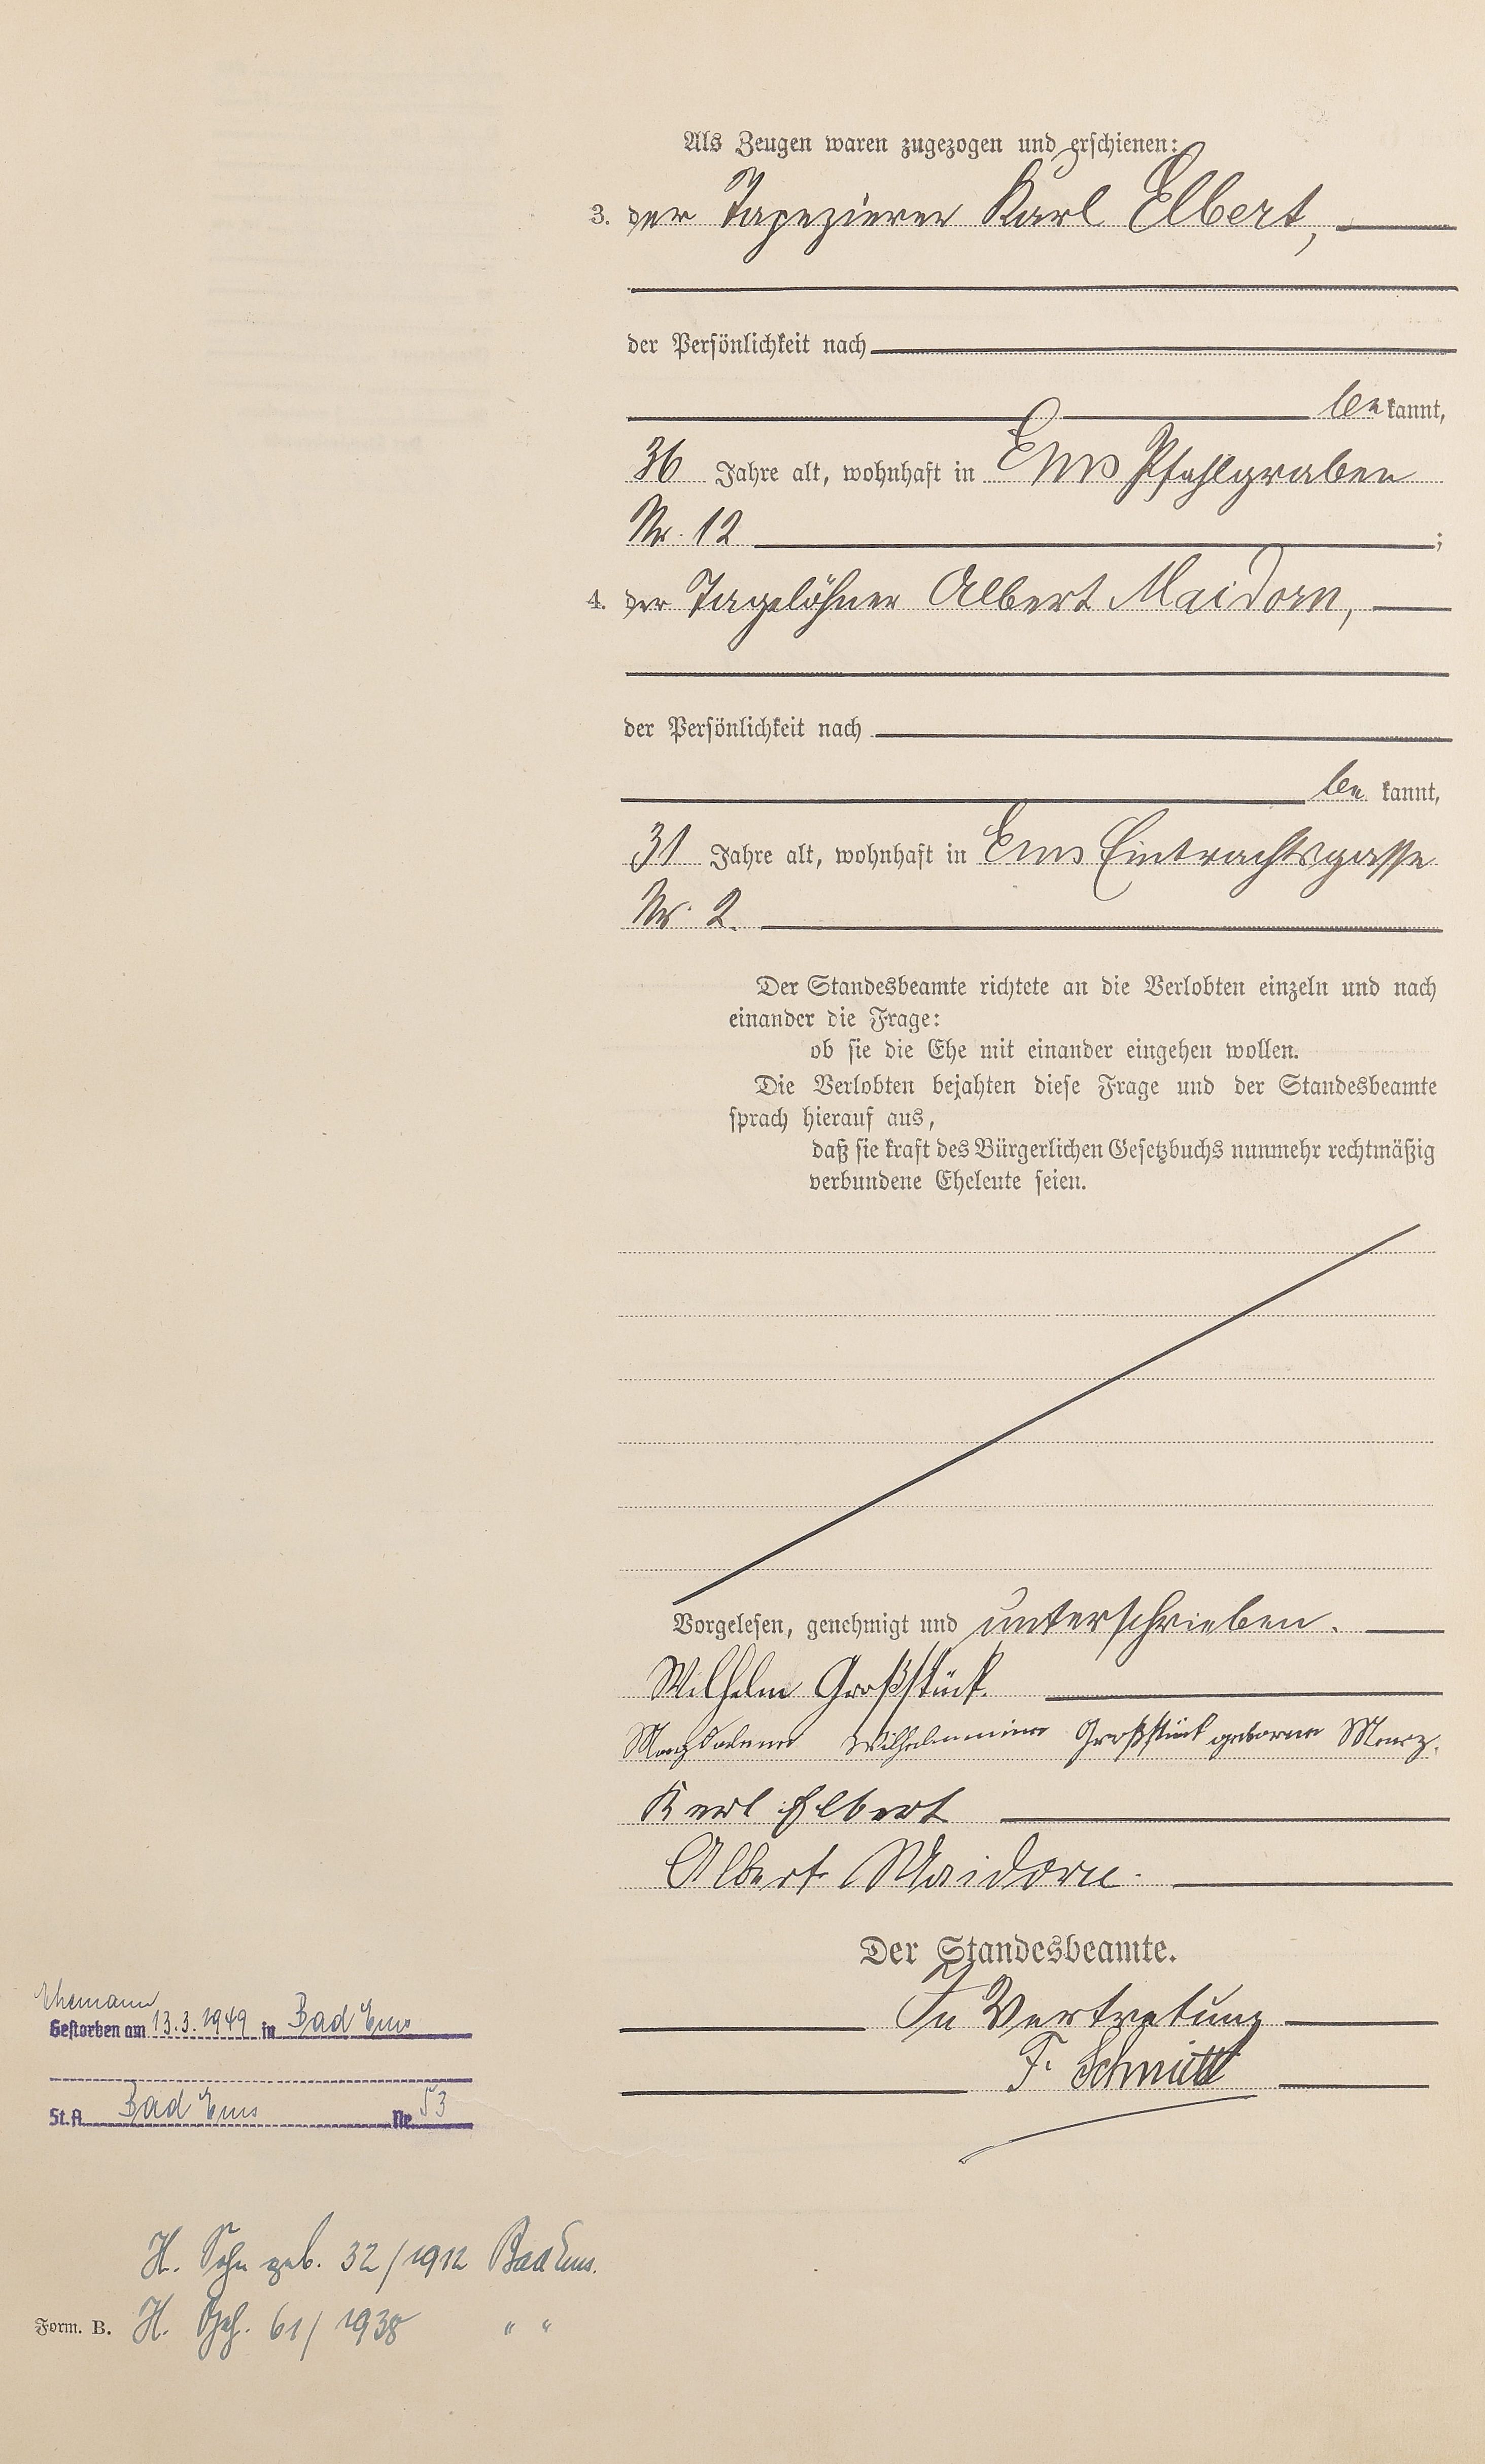 Als Zeugen waren zugezogen und erschienen:
3. der Tapezierer Karl Elbert,
der Persönlichkeit nach
be kannt,
36 Jahre alt, wohnhaft in Ems Pfahlgraben
Nr. 12 ;
4. der Tagelöhner Albert Maidorn,
der Persönlichkeit nach
be kannt,
31 Jahre alt, wohnhaft in Ems Eintrachtsgasse
Nr. 2.
Der Standesbeamte richtete an die Verlobten einzeln und nach
einander die Frage:
ob sie die Ehe mit einander eingehen wollen.
Die Verlobten bejahten diese Frage und der Standesbeamte
sprach hierauf aus,
daß sie kraft des Bürgerlichen Gesetzbuchs nunmehr rechtmäßig
verbundene Eheleute seien.
Vorgelesen, genehmigt und unterschrieben.
Wilhelm Großstück.
Magdalena Wilhelmine Großstück geborne Merz.
Karl Elbert
Albert Maidorn.
Der Standesbeamte.
In Vertretung
F. Schmitt
Ehemann
Gestorben am 13.3.1949 in Bad Ems
St.A. Bad Ems Nr. 53
H. Sohn geb. 32/1912 Bad Ems.
Form. B. H. 61/1938 " "